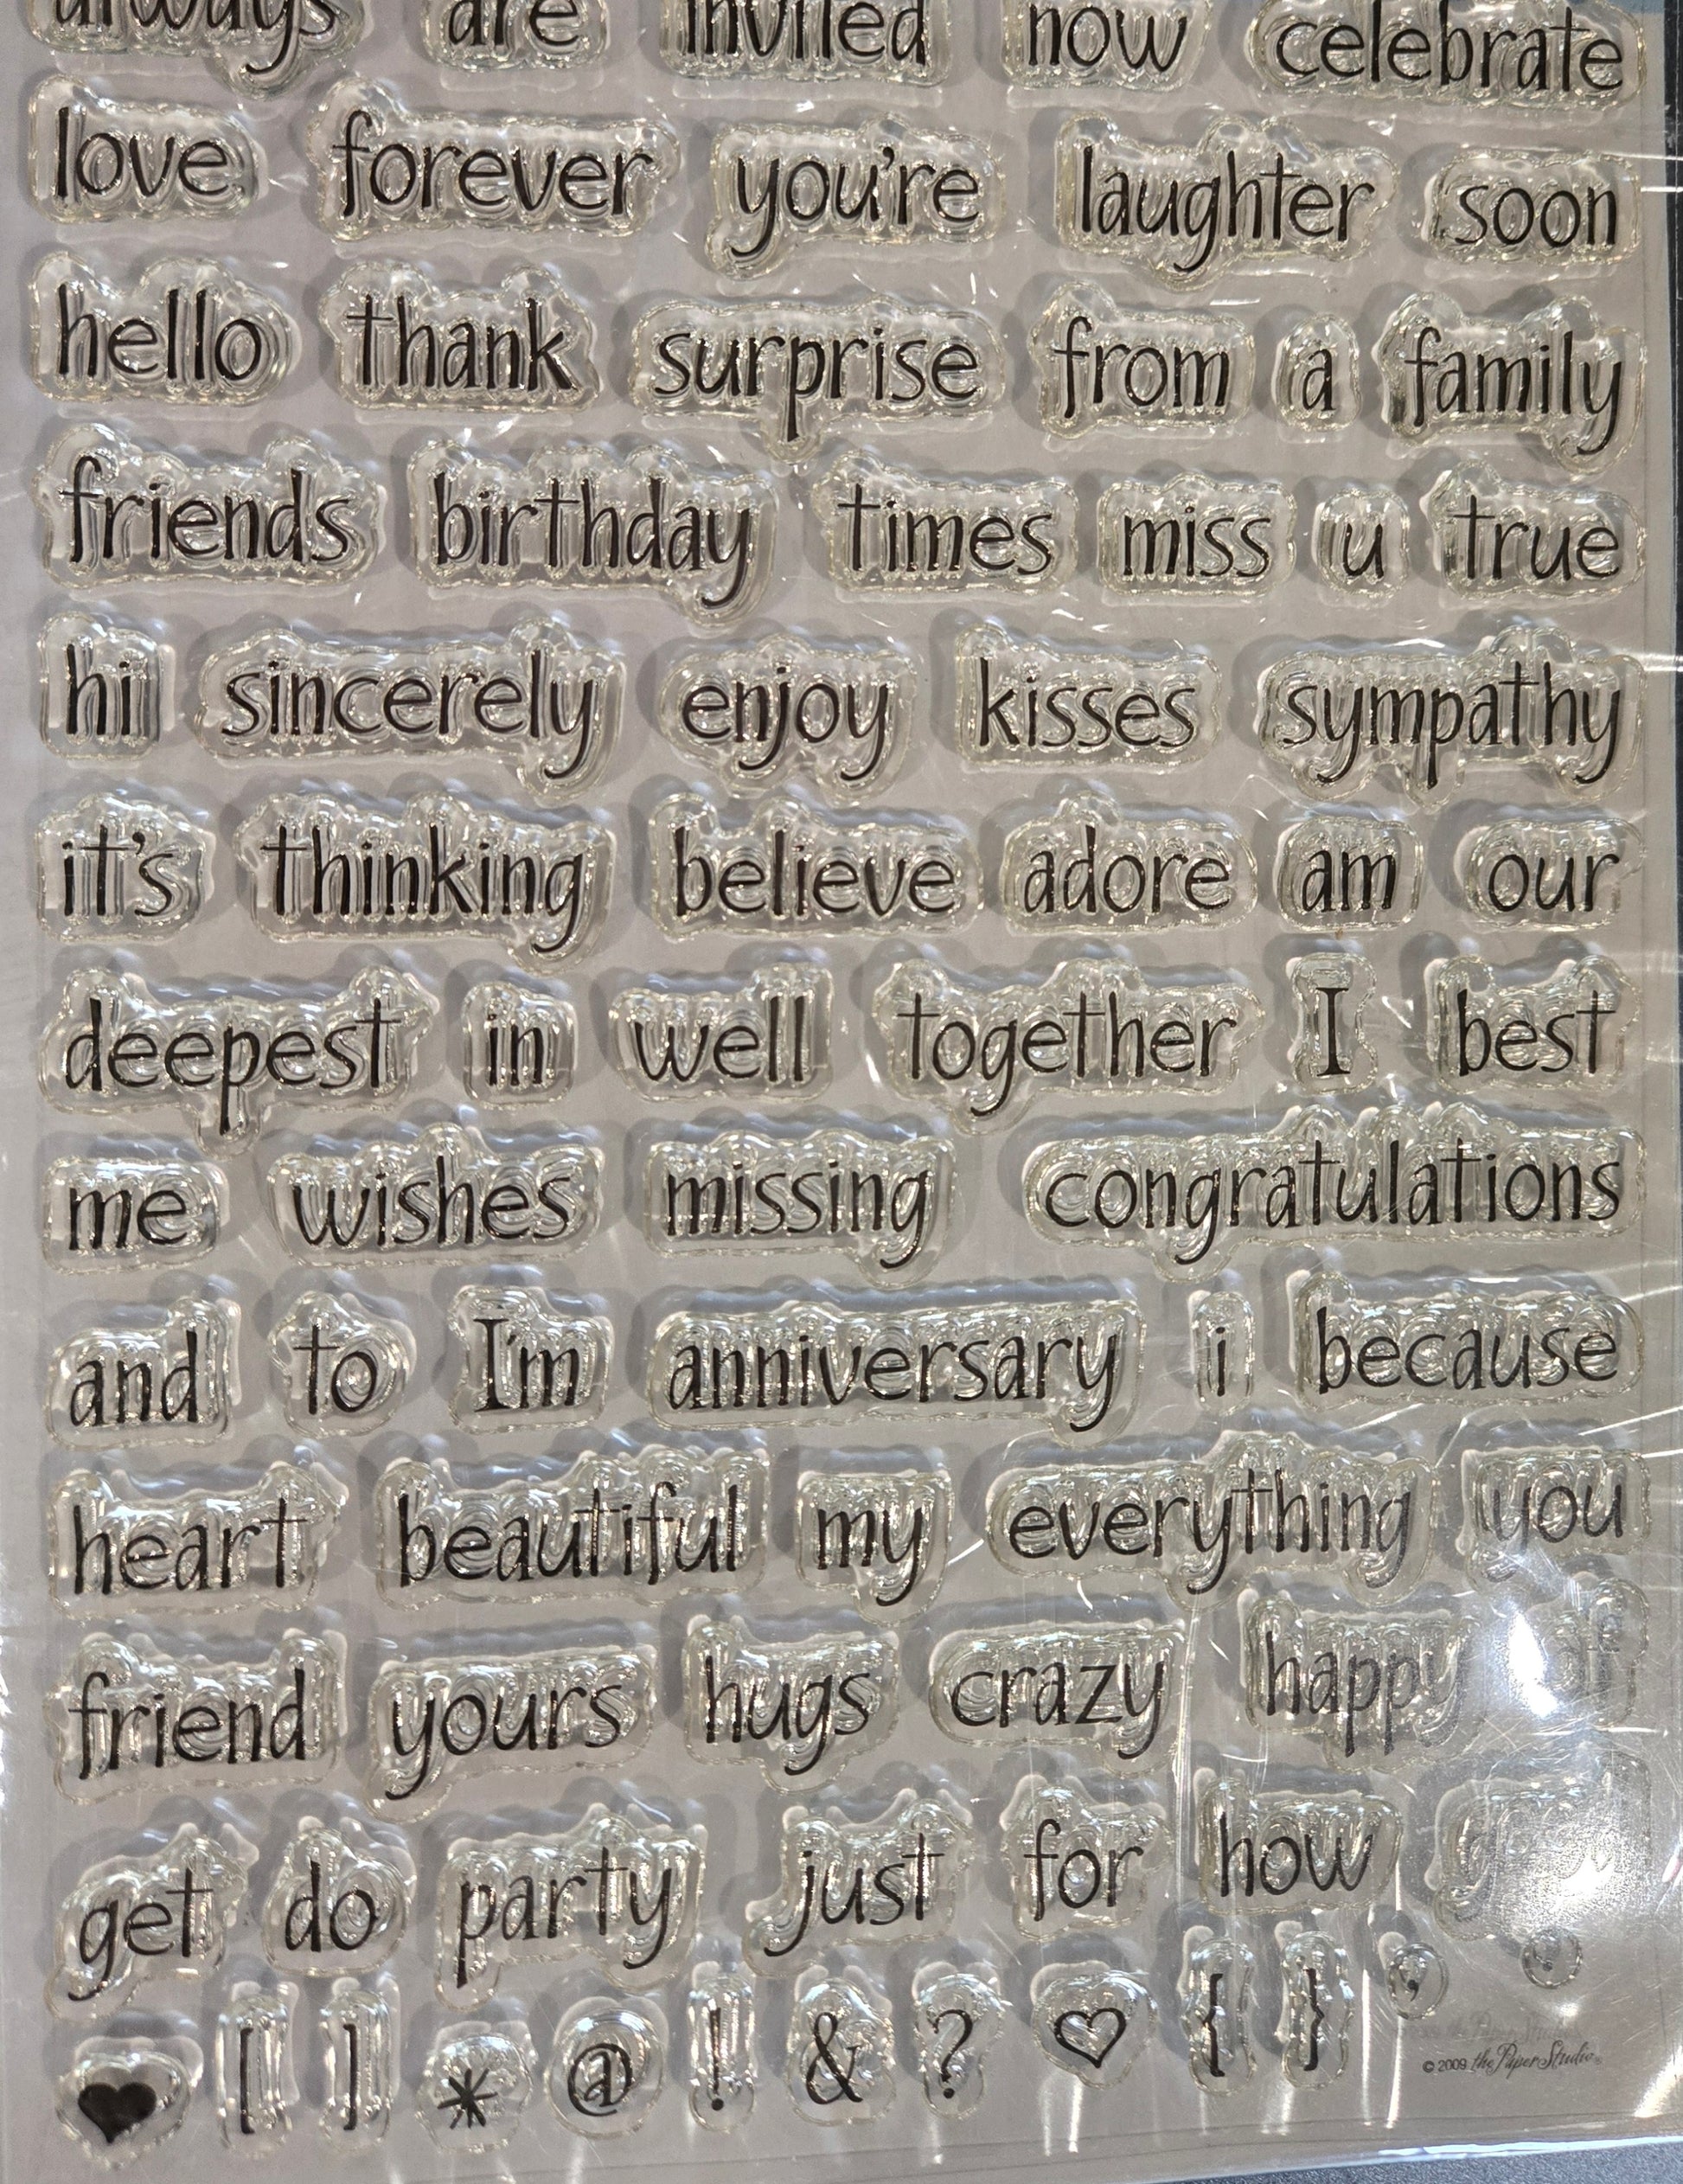 always are invited now celebrate
love forever you're laughter soon
hello thank surprise from a family
friends birthday times miss u true
hi sincerely enjoy kisses sympathy
it's thinking believe adore am our
deepest in well together I best
me wishes missing congratulations
and to I'm anniversary i because
heart beautiful my everything you
friend yours hugs crazy happy
get do party just for how
♥ [ ] * @ ! & ? ♡ { } , .
© 2009 the Paper Studio®